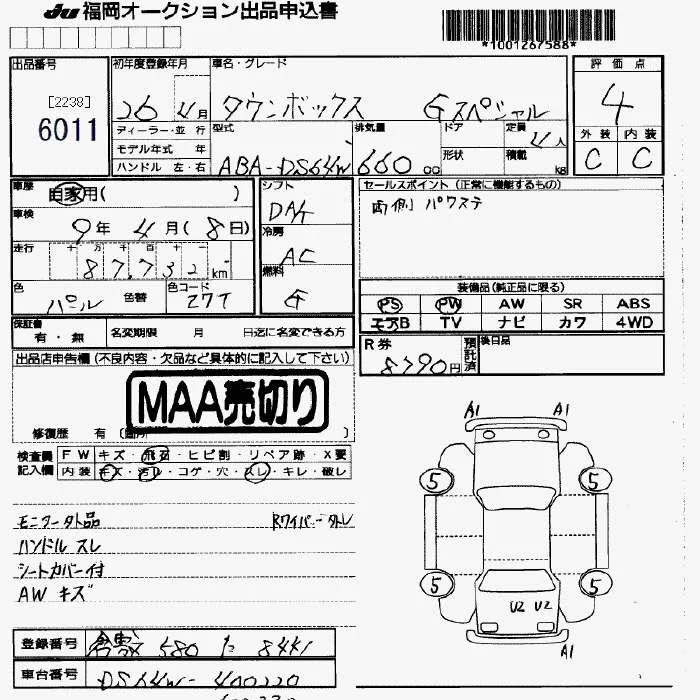 JU 福岡オークション出品申込書
*1001267588*
出品番号
[2238]
6011
初年度登録年月
26 4月
車名・グレード
タウンボックス Gスペシャル
評価点
4
外装 内装
C C
ディーラー・並行
モデル年式 年
ハンドル 左・右
型式
ABA-DS64W
排気量
660 cc
ドア
形状
定員
4人
積載
kg
車歴
自家用( )
車検
9年 4月(8日)
走行
十 万 千 百 十 一
87,732 km
色
パール
色替
色コード
Z7T
シフト
DAt
冷房
AC
燃料
G
セールスポイント (正常に機能するもの)
両側パワステ
装備品(純正品に限る)
PS PW AW SR ABS
エアB TV ナビ カワ 4WD
保証書
有・無
名変期限 月 日迄に名変できる方
R券
8790円
預託済
後日品
出品店申告欄(不良内容・欠品など具体的に記入して下さい)
MAA売切り
修復歴 有 (箇所 )
検査員記入欄
FW キズ・飛石・ヒビ割・リペア跡・X要
内装 キズ・汚レ・コゲ・穴・スレ・キレ・破レ
モニター外品 Rワイパー外レ
ハンドルスレ
シートカバー付
AW キズ
A1 A1
5 5
5 5
U2 U2
A1
登録番号
倉敷 580
車台番号
DS64W-400220